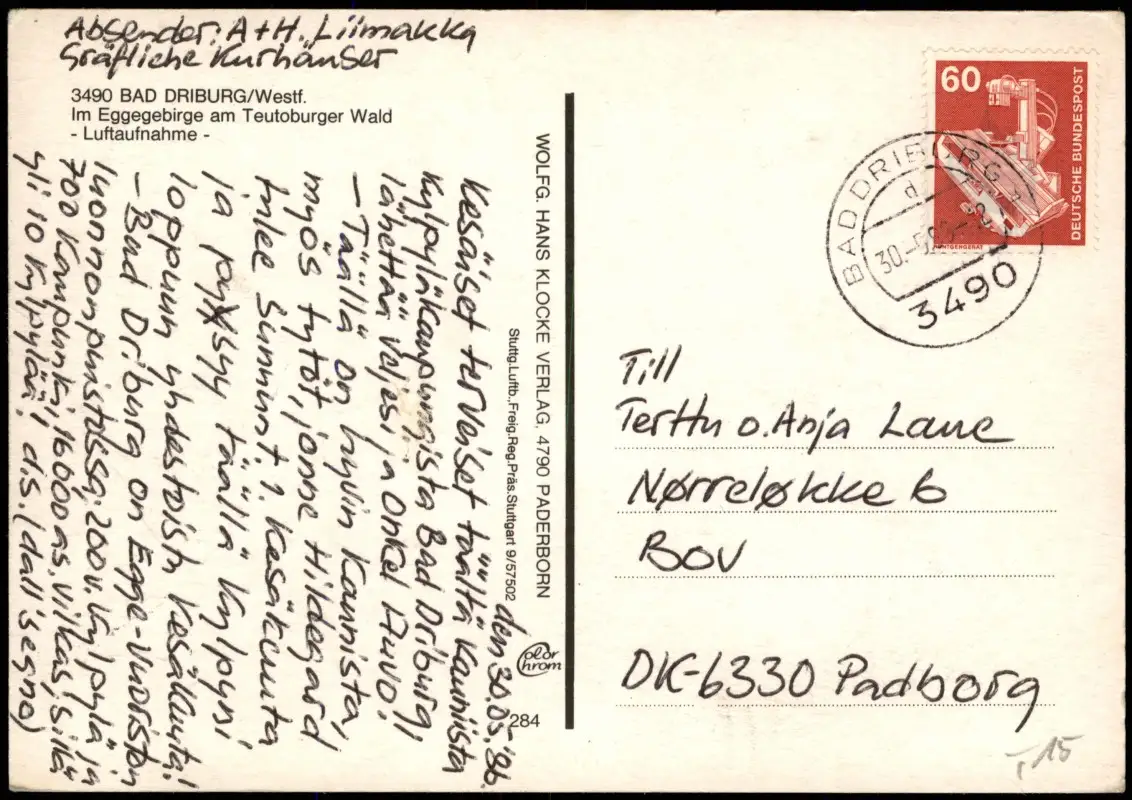 Absender: A+H. Liimakka
Gräfliche Kurhäuser
3490 BAD DRIBURG/Westf.
Im Eggegebirge am Teutoburger Wald
- Luftaufnahme -
den 30.05.'86.
Kesäiset terveiset täältä kauniista
Kylpyläkaupungista Bad Driburg,
lähettää veljesi ja onkel Auvo!
- Täällä on hyvin kaunista,
myös tytöt, jonne Hildegard
tulee Sunnunt. 1. Kesäkuuta
ja pyksyy täällä kylpyni
loppuun yhdestoista Kesäkuuta!
- Bad Driburg on Egge-Vuoriston
luonnonpuistossa, 200 v. Kylpylä ja
700 Kaupunki, 16000 as, vilkas, sillä
yli 10 Kylpylää! d.s. (dall'segno)
WOLFG. HANS KLOCKE VERLAG, 4790 PADERBORN
Stuttg.Luftb., Freig.Reg.Präs.Stuttgart 9/57502
Color
Chrom
284
60
DEUTSCHE BUNDESPOST
RÖNTGENGERÄT
BAD DRIBURG 1
d
30.-5.86
3490
Till
Terttu o. Anja Laue
Nørreløkke 6
BOV
DK-6330 Padborg
-,15